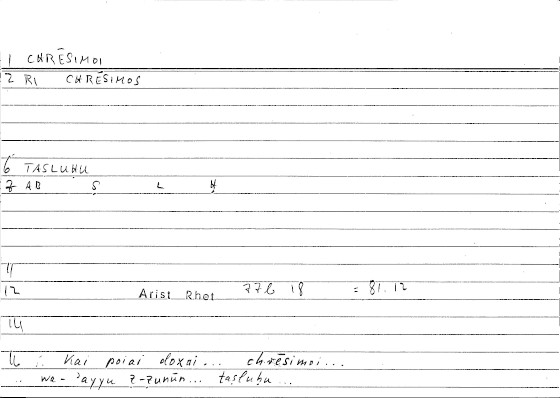 1 CHRĒSIMOI
2 RI CHRĒSIMOS
6 TASLUḤU
7 AD Ṣ L Ḥ
11
12 Arist Rhet 77b 18 = 81.12
14
Kai poiai doxai... chrēsimoi...
wa-ʾayyu ẓ-ẓunūn... taṣluḥu...